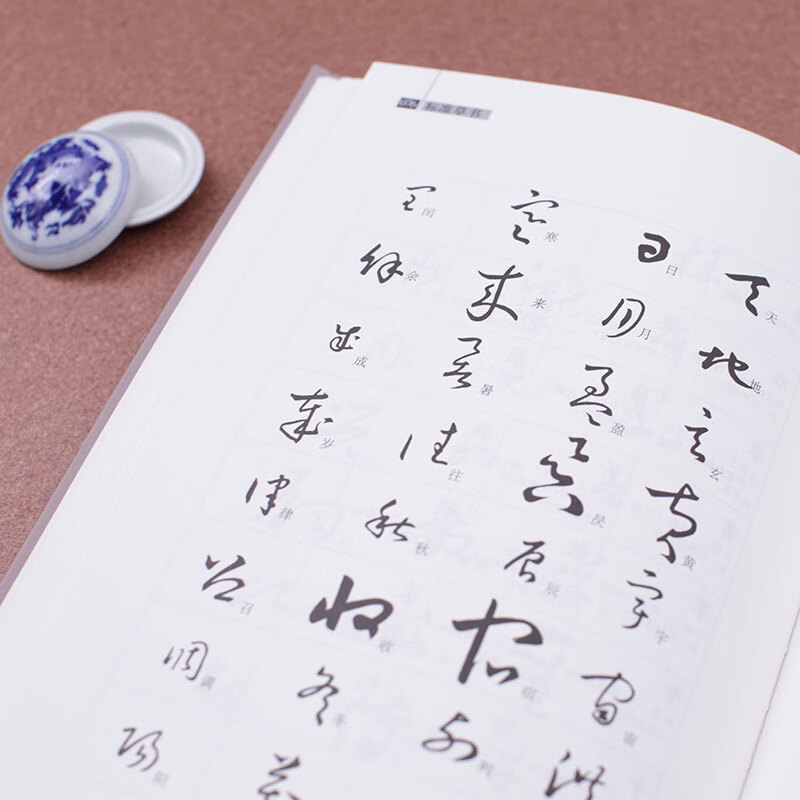 标准草书
天地玄黄宇宙洪
日月盈昃辰宿列
寒来暑往秋收冬
闰余成岁律召调阳